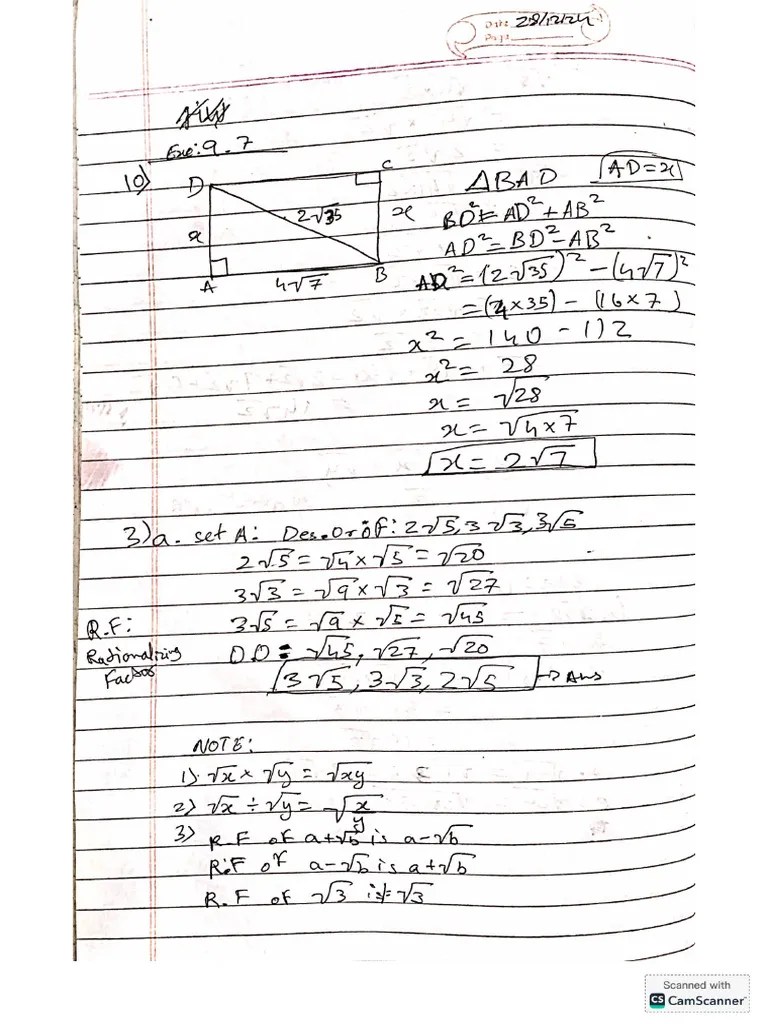 Date: 28/12/24
Page:
Exe: 9.7
10)
D
C
2√35
x
x
A
4√7
B
△BAD
AD=x
BD²=AD²+AB²
AD²=BD²-AB²
AD²=(2√35)²-(4√7)²
=(4×35)-(16×7)
x²=140-112
x²=28
x=√28
x=√4×7
x=2√7
3)a. set A: Des.Or of: 2√5, 3√3, 3√5
2√5=√4×√5=√20
3√3=√9×√3=√27
R.F:
3√5=√9×√5=√45
Rationalizing
Factor
D.O = √45, √27, √20
3√5, 3√3, 2√5 → Ans
NOTE:
1) √x×√y=√xy
2) √x÷√y=√x/y
3) R.F of a+√b is a-√b
R.F of a-√b is a+√b
R.F of √3 is √3
Scanned with
CS CamScanner